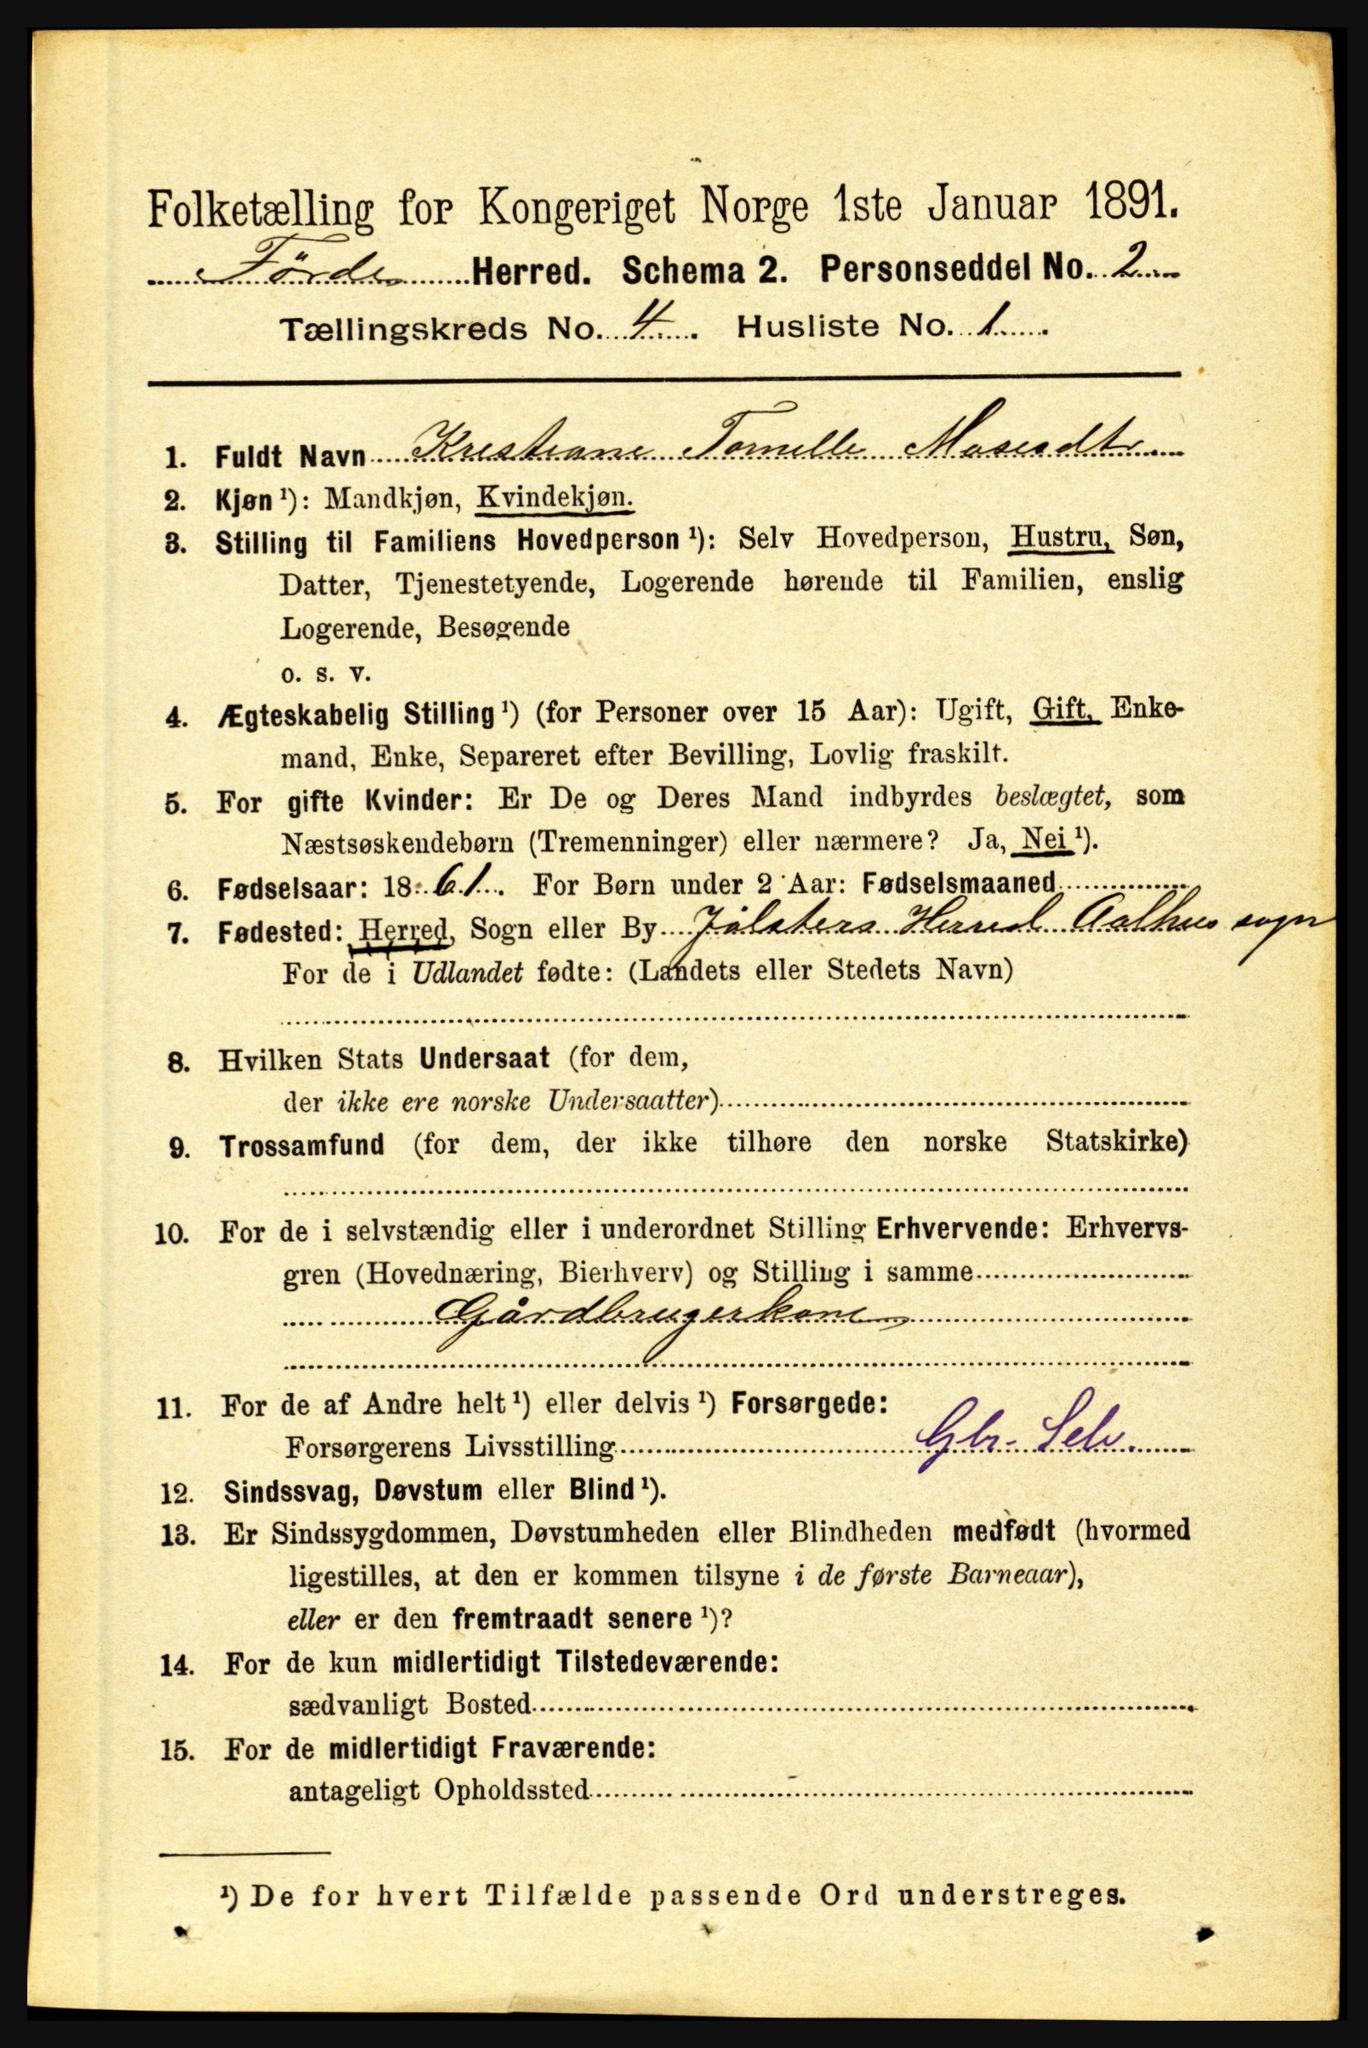 Folketælling for Kongeriget Norge 1ste Januar 1891.
Förde Herred. Schema 2. Personseddel No. 2
Tællingskreds No. 4. Husliste No. 1.
1. Fuldt Navn Kristiane Tomelle Mosesdtr
2. Kjøn ¹): Mandkjøn, Kvindekjøn.
3. Stilling til Familiens Hovedperson ¹): Selv Hovedperson, Hustru, Søn,
Datter, Tjenestetyende, Logerende hørende til Familien, enslig
Logerende, Besøgende
o. s. v.
4. Ægteskabelig Stilling ¹) (for Personer over 15 Aar): Ugift, Gift, Enke-
mand, Enke, Separeret efter Bevilling, Lovlig fraskilt.
5. For gifte Kvinder: Er De og Deres Mand indbyrdes beslægtet, som
Næstsøskendebørn (Tremenninger) eller nærmere? Ja, Nei ¹).
6. Fødselsaar: 1861. For Børn under 2 Aar: Fødselsmaaned
7. Fødested: Herred, Sogn eller By Jølsters Herred Aalhus sogn
For de i Udlandet fødte: (Landets eller Stedets Navn)
8. Hvilken Stats Undersaat (for dem,
der ikke ere norske Undersaatter)
9. Trossamfund (for dem, der ikke tilhøre den norske Statskirke)
10. For de i selvstændig eller i underordnet Stilling Erhvervende: Erhvervs-
gren (Hovednæring, Bierhverv) og Stilling i samme
Gårdbrugerkone
11. For de af Andre helt ¹) eller delvis ¹) Forsørgede:
Forsørgerens Livsstilling Gbr. Selv.
12. Sindssvag, Døvstum eller Blind ¹).
13. Er Sindssygdommen, Døvstumheden eller Blindheden medfødt (hvormed
ligestilles, at den er kommen tilsyne i de første Barneaar),
eller er den fremtraadt senere ¹)?
14. For de kun midlertidigt Tilstedeværende:
sædvanligt Bosted
15. For de midlertidigt Fraværende:
antageligt Opholdssted
¹) De for hvert Tilfælde passende Ord understreges.